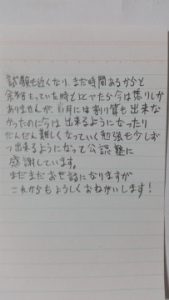 試験も近くなり、まだ時間あるからと
余裕もっていた時と比べたら今は焦りしか
ありませんが、6月には割り算も出来な
かったのに今は出来るようになったり
だんだん難しくなっていく勉強も少しず
つ出来るようになって公認塾に
感謝しています。
まだまだお世話になりますが
これからもよろしくおねがいします!